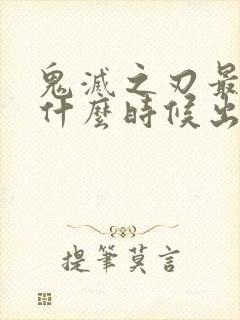 鬼滅之刃最
什麼時候出
提筆莫言